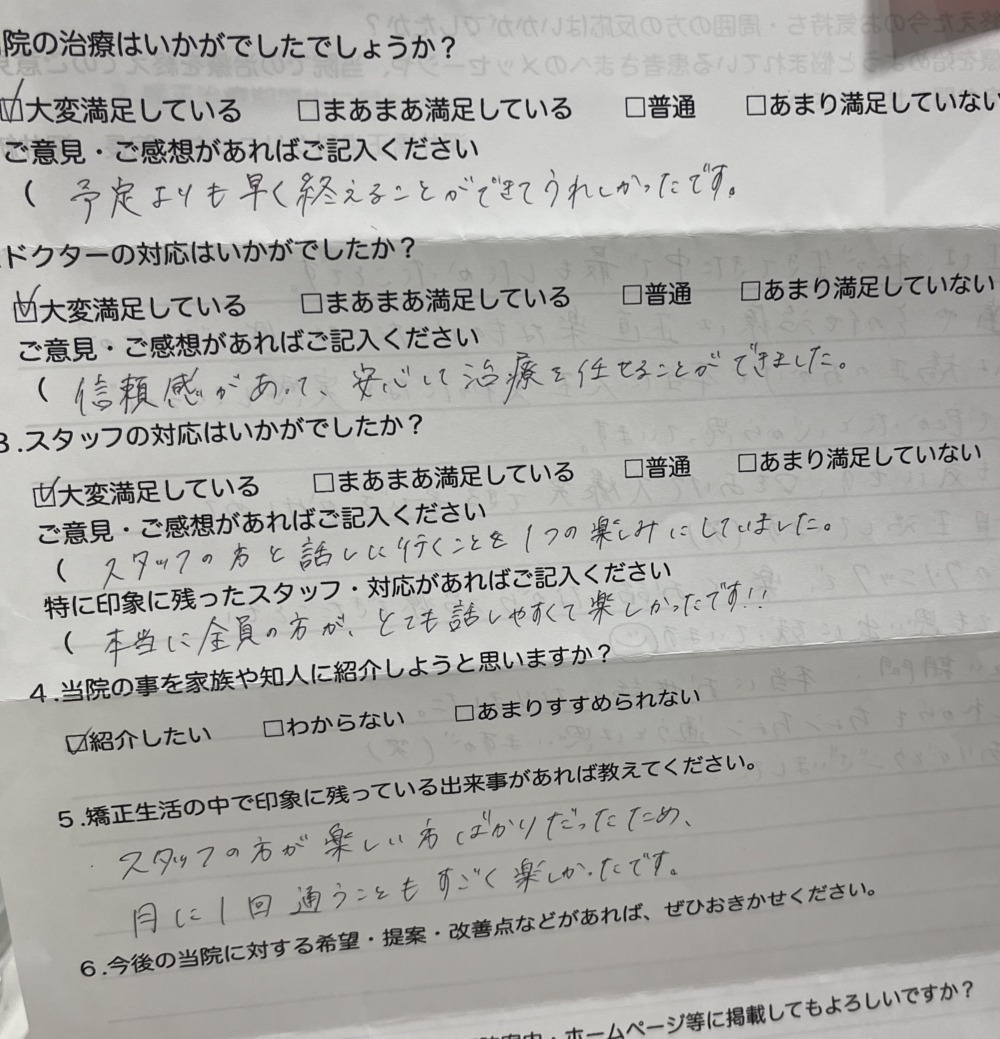 院の治療はいかがでしたでしょうか？
☑大変満足している □まあまあ満足している □普通 □あまり満足していない
ご意見・ご感想があればご記入ください
( 予定よりも早く終えることができてうれしかったです。
ドクターの対応はいかがでしたか？
☑大変満足している □まあまあ満足している □普通 □あまり満足していない
ご意見・ご感想があればご記入ください
( 信頼感があって、安心して治療を任せることができました。
3.スタッフの対応はいかがでしたか？
☑大変満足している □まあまあ満足している □普通 □あまり満足していない
ご意見・ご感想があればご記入ください
( スタッフの方と話しに行くことを1つの楽しみにしていました。
特に印象に残ったスタッフ・対応があればご記入ください
( 本当に全員の方が、とても話しやすくて楽しかったです!!
4.当院の事を家族や知人に紹介しようと思いますか？
☑紹介したい □わからない □あまりすすめられない
5.矯正生活の中で印象に残っている出来事があれば教えてください。
スタッフの方が楽しい方ばかりだったため、
月に1回通うこともすごく楽しかったです。
6.今後の当院に対する希望・提案・改善点などがあれば、ぜひおきかせください。
案内・ホームページ等に掲載してもよろしいですか？